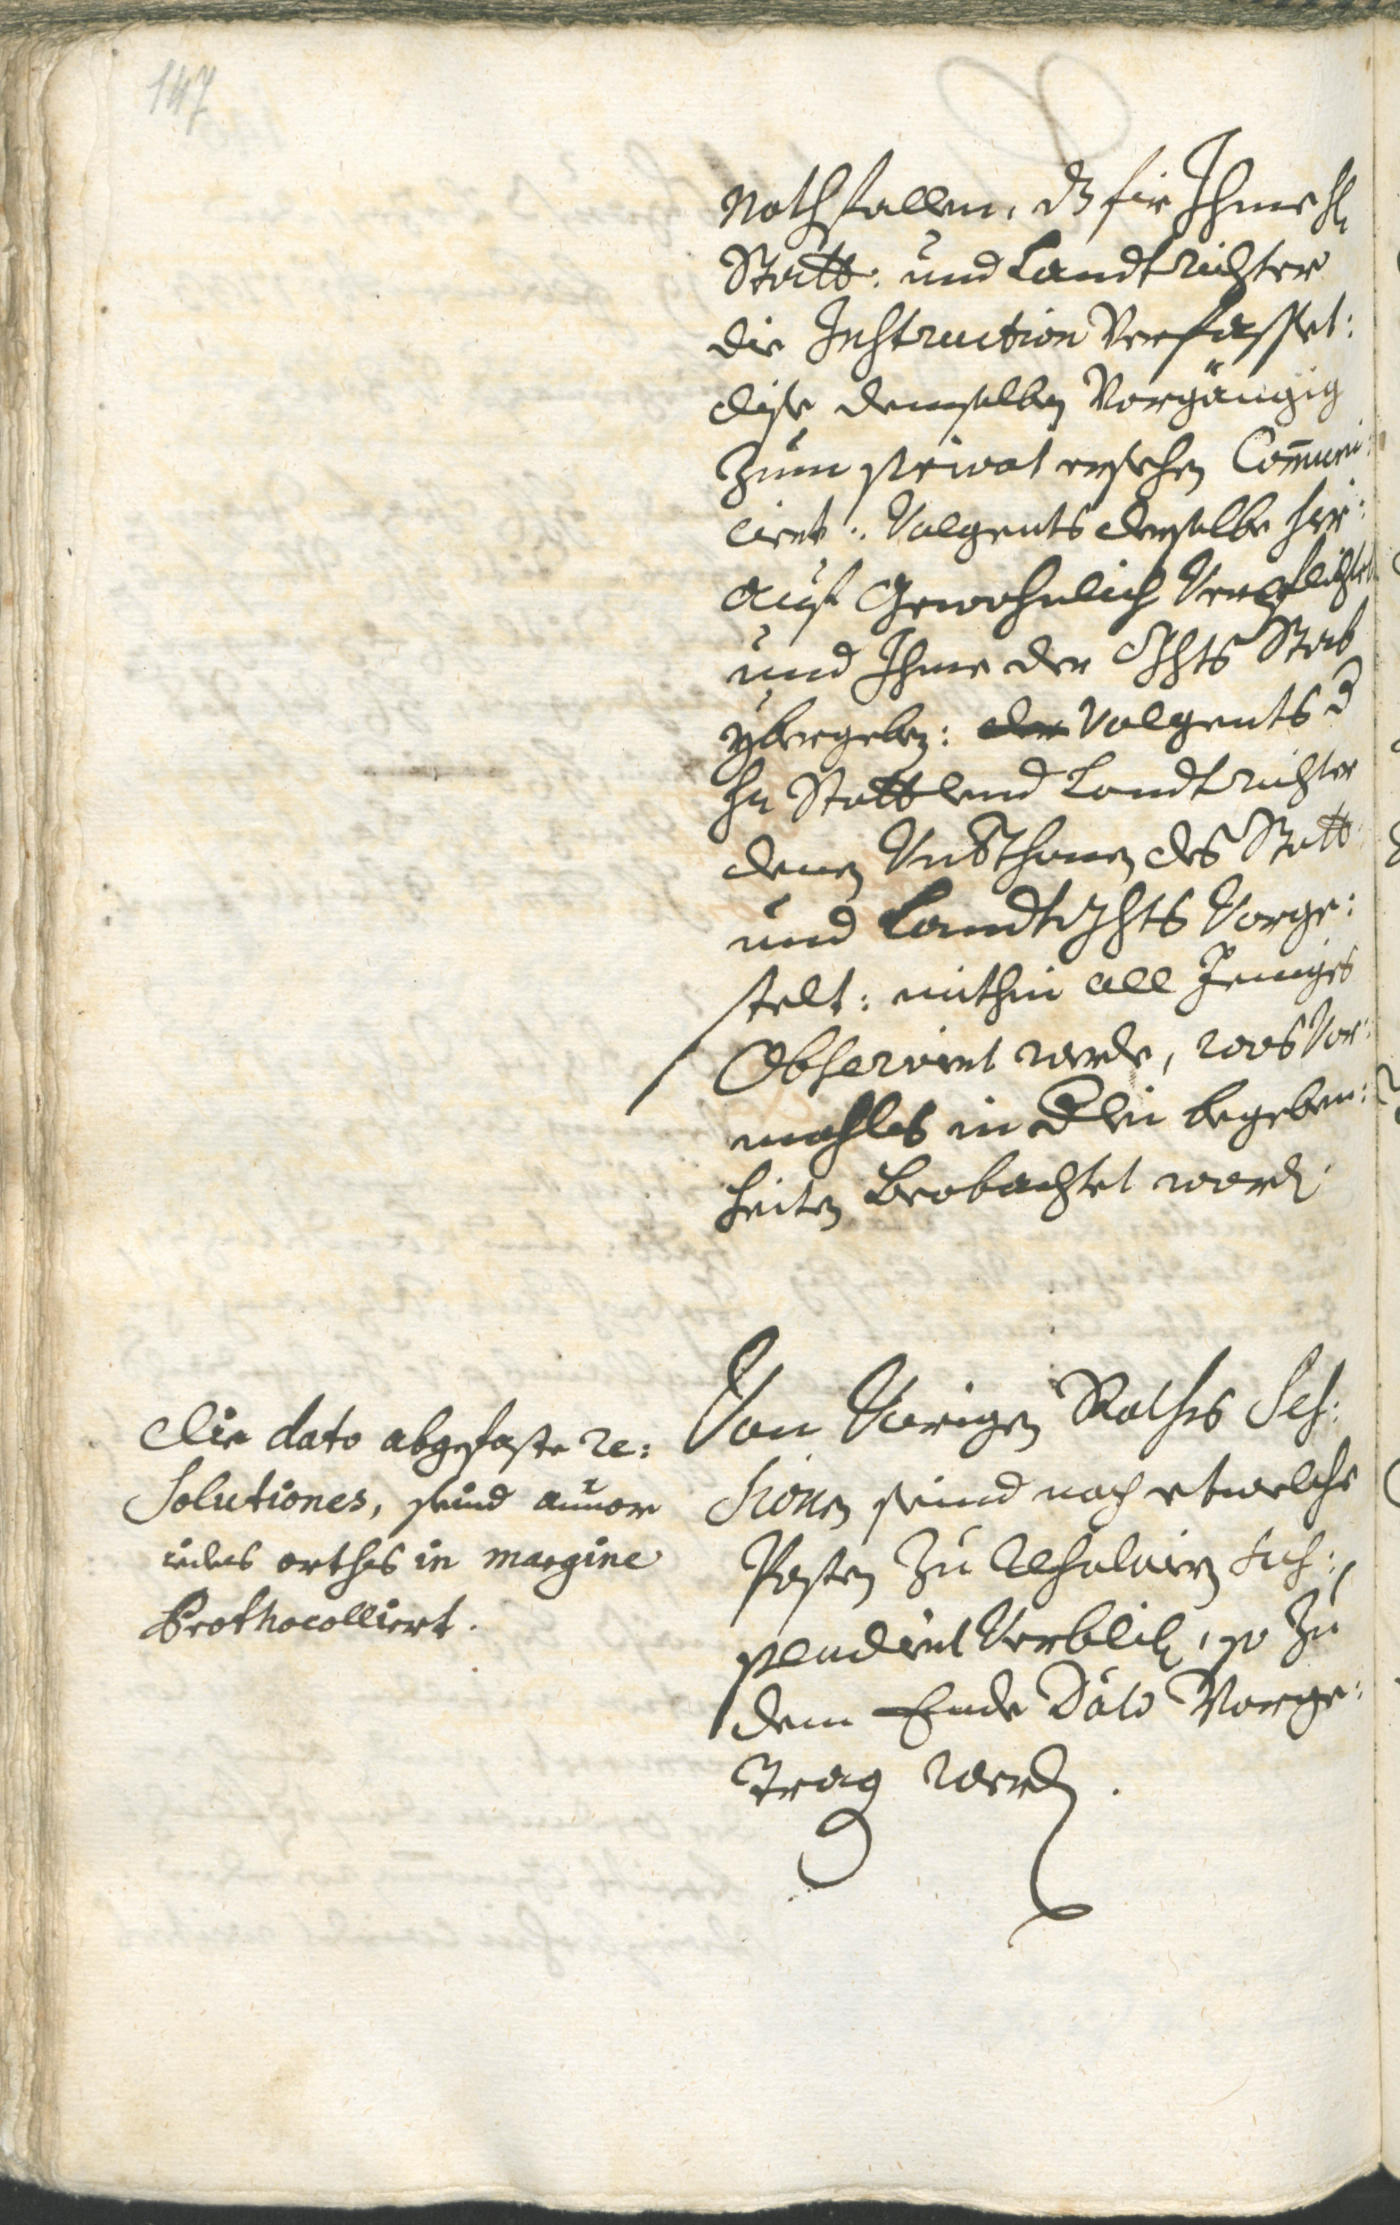 147
Nothfallen, dz fir Ihme H
Statt: und Landtrichter
die Instruction Verfasset:
dise demselben Vorgängig
Zum privat ersehen Com̄uni:
cirt: Volgents derselbe hir:
auf Gewohnlich Verpflichtet
und Ihme der Ghts Stab
ybergeben: der Volgents d
Hr Statt und Landtrichter
denen des Statt
und LandtGhts Vorge:
stelt: mithin all Jeniges
Observiert werde, was Vor:
mahles in d begeben:
heiten Beobachtet word.
Von Vorigen Raths Ses:
sionen seind noch etwelche
Posten Zu Resolvirn sus:
pendirt Verblib, so Zu
dem Ende Dato Vorge:
trag werd.
Die dato abgefaste re:
solutiones, seind anvor
iedes orthes in margine
Prothocolliert.